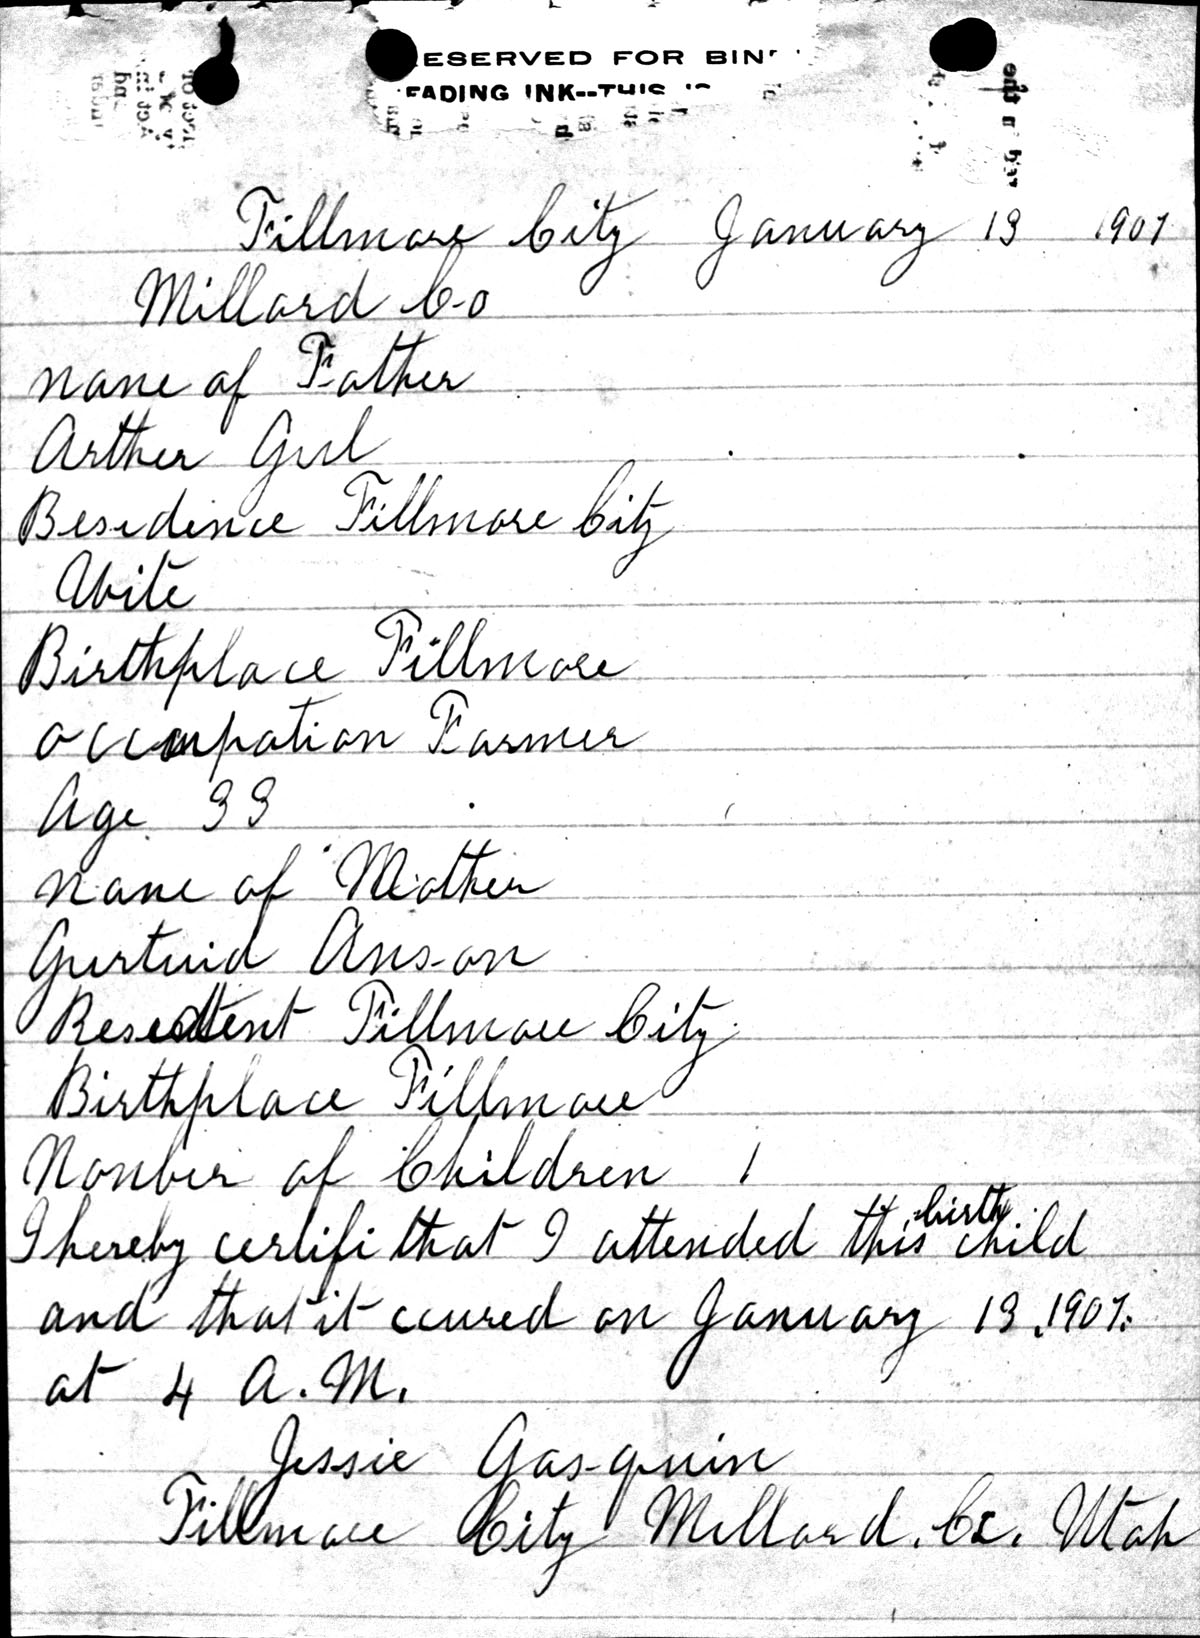 ESERVED FOR BIN
FADING INK--THIS IS
Fillmore City January 13 1907
Millard Co
nane of Father
Arther Gul
Besidince Fillmore City
Wite
Birthplace Fillmore
occupation Farmer
Age 33
nane of Mother
Gurtuid Anson
Resedtent Fillmore City
Birthplace Fillmore
Nonber of Children 1
birth
I hereby certifi that I attended this child
and that it ccured on January 13, 1907.
at 4 A.M.
Jessie Gasquin
Fillmore City Millard. Co. Utah